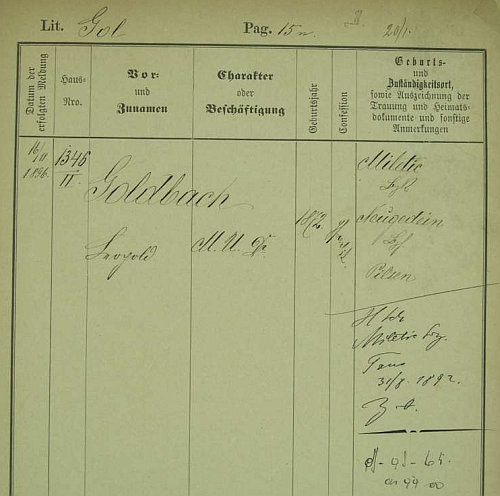 Lit. Gol Pag. 15 n. 20/1.
Datum der erfolgten Meldung
Haus-Nro.
Vor-
und
Zunamen
Charakter
oder
Beschäftigung
Geburtsjahr
Confession
Geburts-
und
Zuständigkeitsort,
sowie Auszeichnung der
Trauung und Heimats-
dokumente und sonstige
Anmerkungen
16/11 1896.
1346/II
Goldbach
Leopold
M. U. Dr
1872
Miletic
Neugedein
Pilsen
Miletic
Taus
31/8 1892.